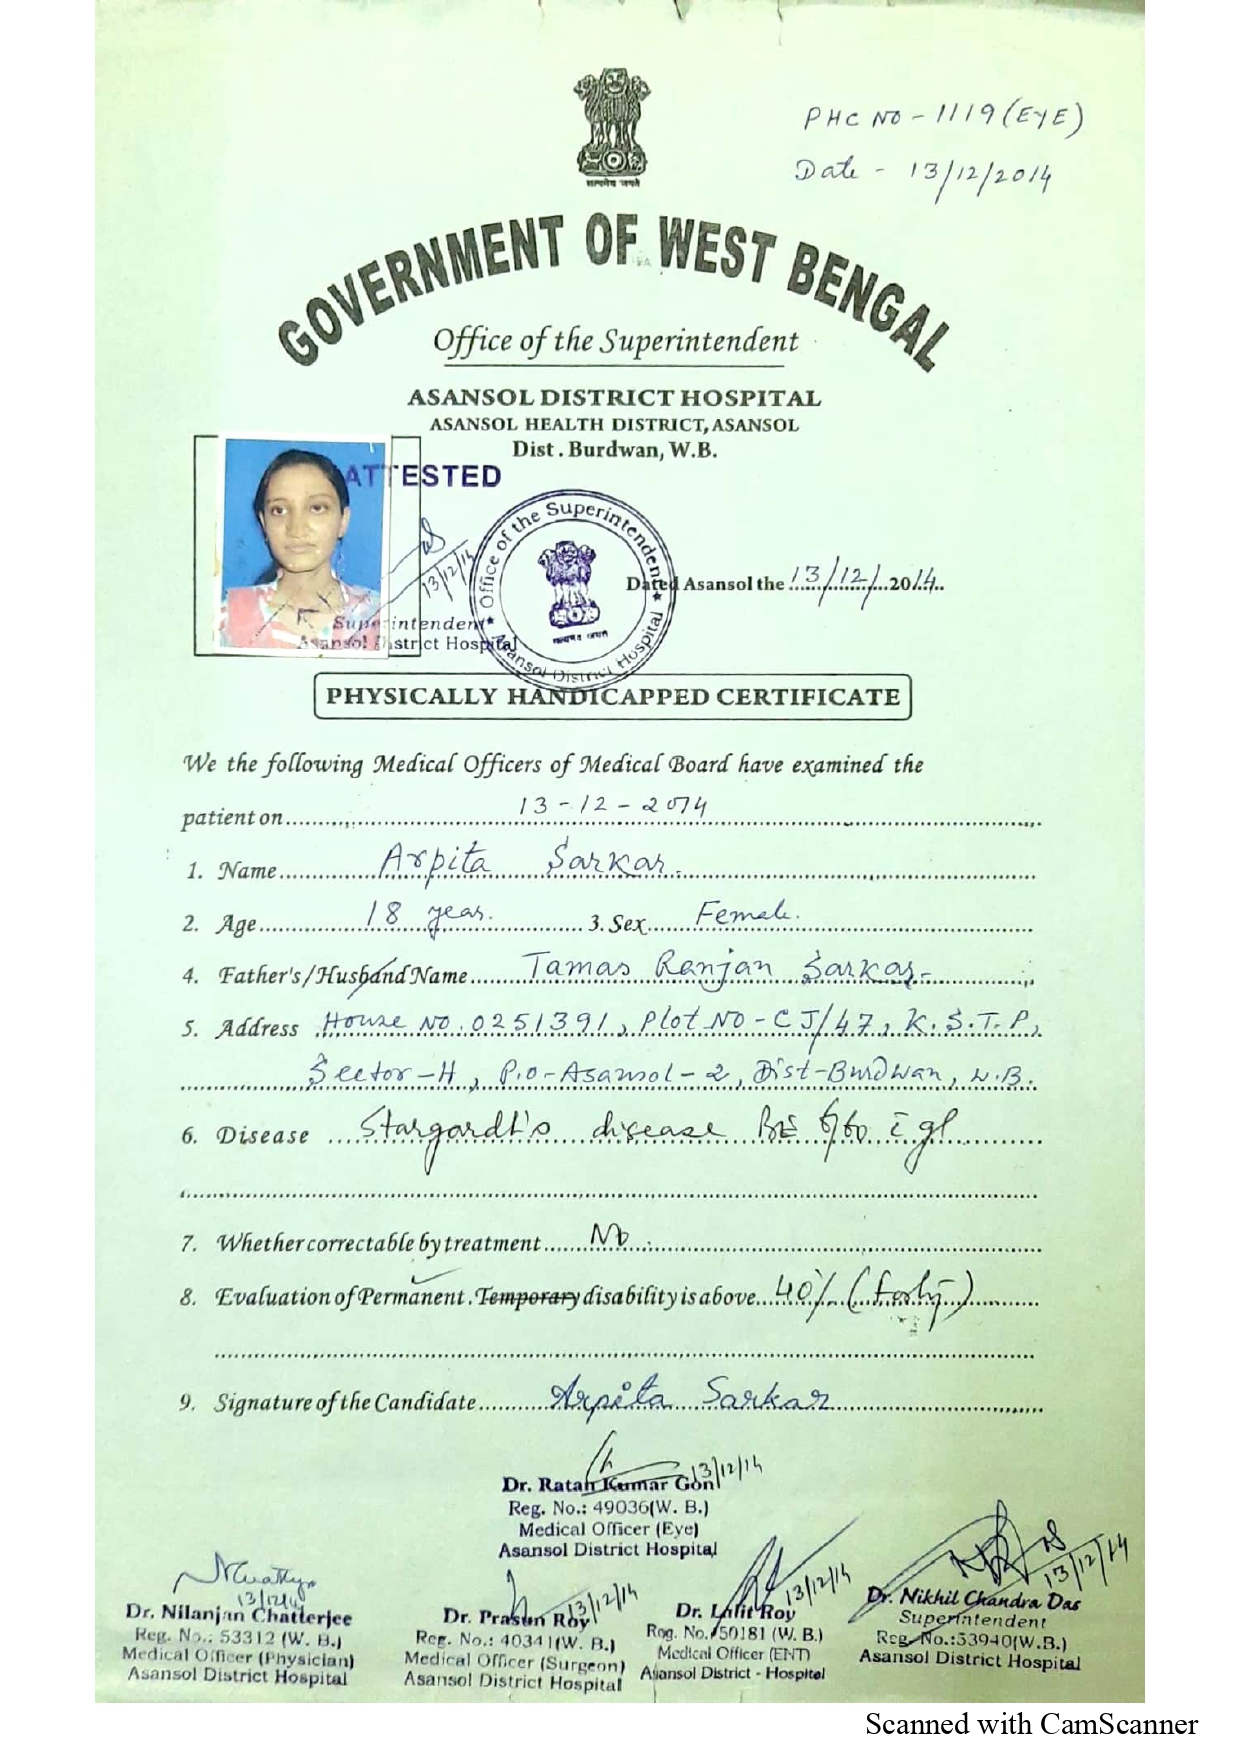 PHC NO - 1119 (EYE)
Date - 13/12/2014
सत्यमेव जयते
GOVERNMENT OF WEST BENGAL
Office of the Superintendent
ASANSOL DISTRICT HOSPITAL
ASANSOL HEALTH DISTRICT, ASANSOL
Dist. Burdwan, W.B.
ATTESTED
13/12/14
Superintendent
Asansol District Hospital
Office of the Superintendent
सत्यमेव जयते
Asansol District Hospital
Dated Asansol the 13/12/2014
PHYSICALLY HANDICAPPED CERTIFICATE
We the following Medical Officers of Medical Board have examined the
patient on 13-12-2014
1. Name Arpita Sarkar
2. Age 18 year. 3. Sex Female.
4. Father's/Husband Name Tamas Ranjan Sarkar
5. Address House No. 0251391, Plot No-CJ/47, K.S.T.P,
Sector-H, P.O-Asansol-2, Dist-Burdwan, W.B.
6. Disease Stargardt's disease BE 6/60 c gl
7. Whether correctable by treatment No
8. Evaluation of Permanent. Temporary disability is above 40% (forty)
9. Signature of the Candidate Arpita Sarkar
13/12/14
Dr. Ratan Kumar Gon
Reg. No.: 49036(W. B.)
Medical Officer (Eye)
Asansol District Hospital
13/12/14
Dr. Nilanjan Chatterjee
Reg. No.: 53312 (W. B.)
Medical Officer (Physician)
Asansol District Hospital
13/12/14
Dr. Prasun Roy
Reg. No.: 40341(W. B.)
Medical Officer (Surgeon)
Asansol District Hospital
13/12/14
Dr. Lalit Roy
Reg. No. 50181 (W. B.)
Medical Officer (ENT)
Asansol District - Hospital
13/12/14
Dr. Nikhil Chandra Das
Superintendent
Reg. No.:53940(W.B.)
Asansol District Hospital
Scanned with CamScanner